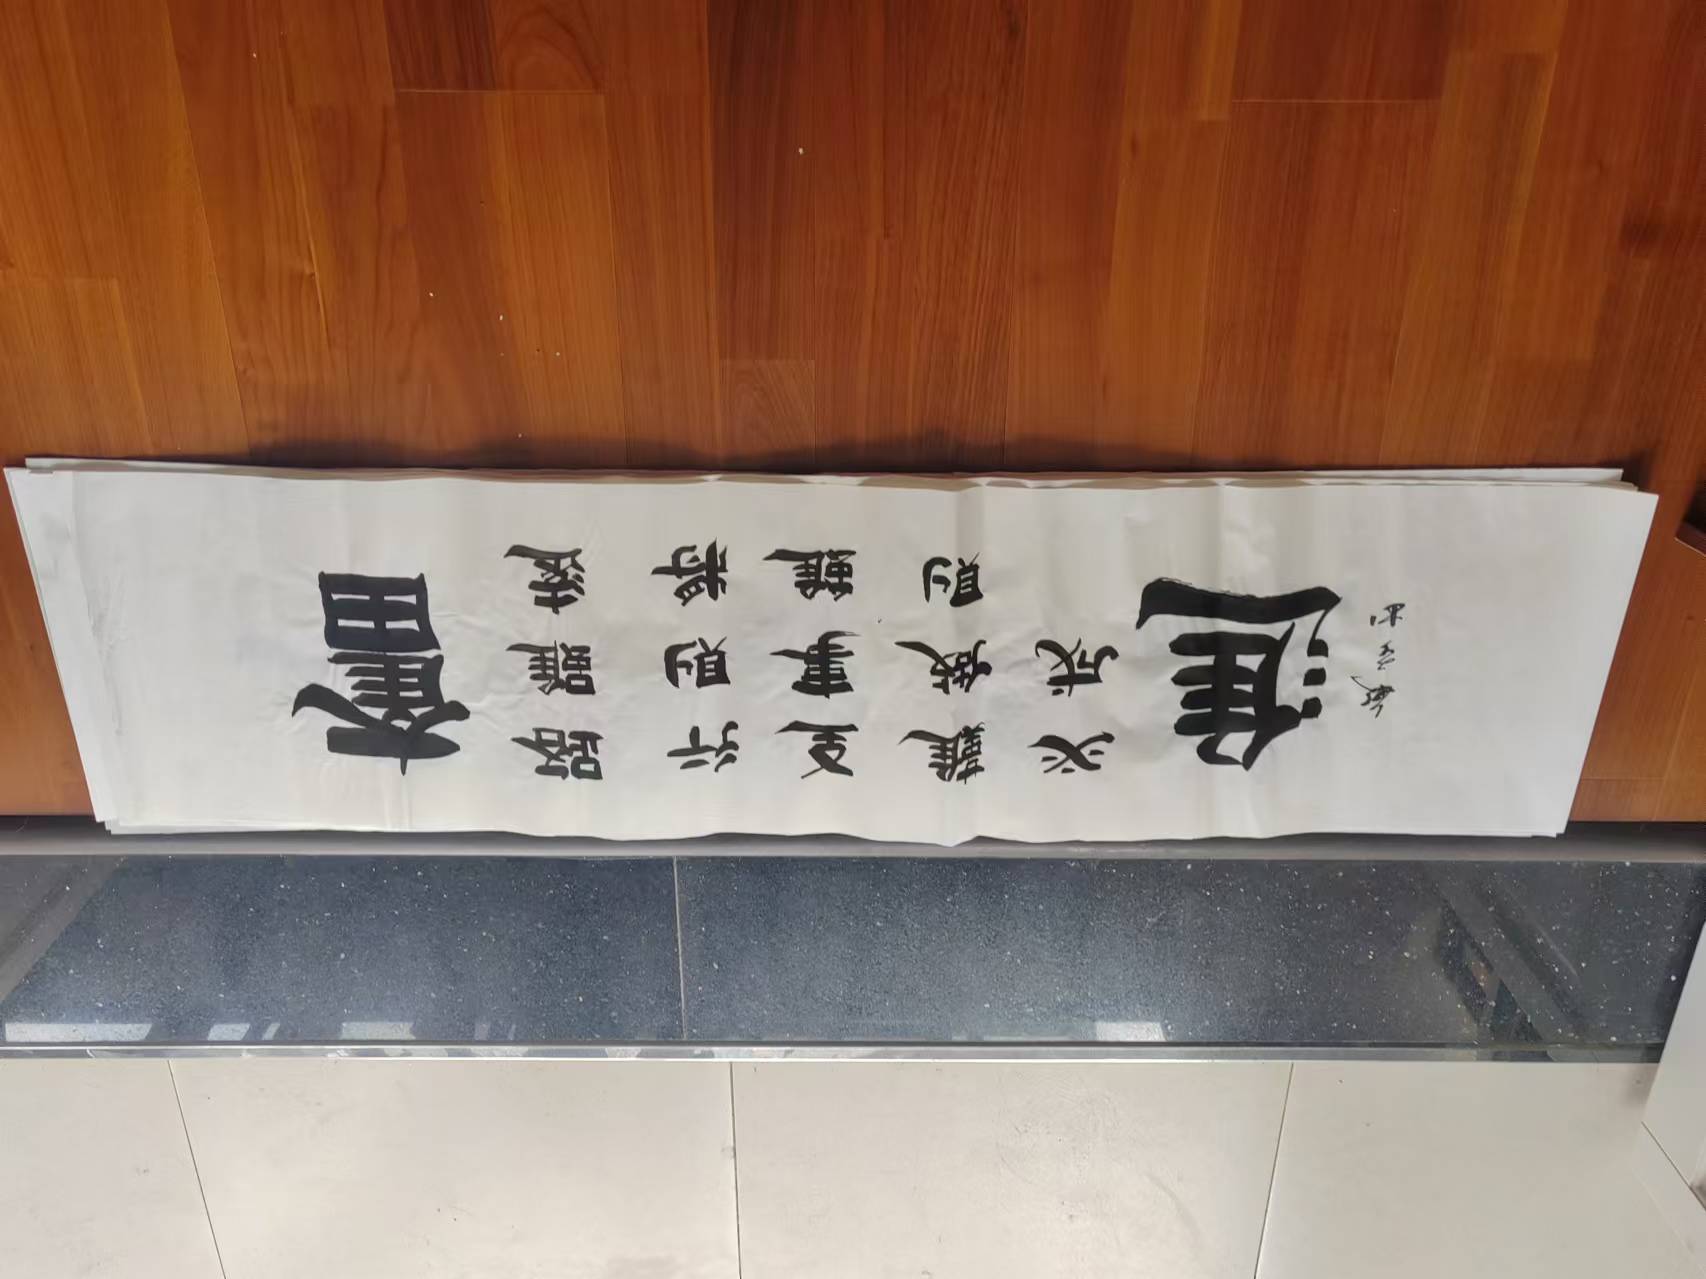 奮
路雖遠
行則將
至事雖
難做則
必成
進